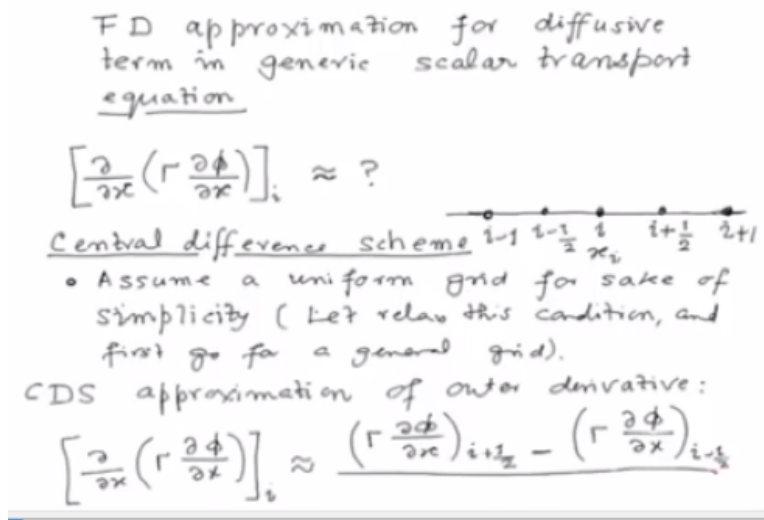 FD approximation for diffusive
term in generic scalar transport
equation
[∂/∂x (Γ ∂φ/∂x)]_i ≈ ?
i-1 i-1/2 i i+1/2 i+1
x_i
Central difference scheme
• Assume a uniform grid for sake of
simplicity (Let relax this condition, and
first go for a general grid).
CDS approximation of outer derivative:
[∂/∂x (Γ ∂φ/∂x)]_i ≈ (Γ ∂φ/∂x)_{i+1/2} - (Γ ∂φ/∂x)_{i-1/2}